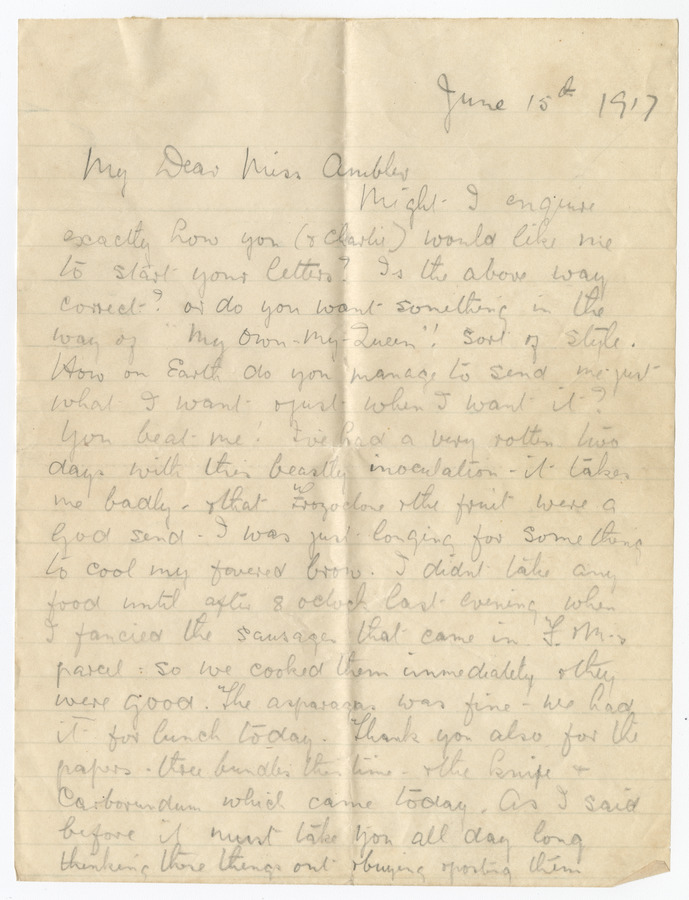 June 15th 1917
My Dear Miss Ambler
Might I enquire
exactly how you (& Charlie) would like me
to start your letters? Is the above way
correct? or do you want something in the
way of "My Own-My-Queen"! sort of style.
How on Earth do you manage to send me just
what I want & just when I want it?
You beat me! I've had a very rotten two
days with this beastly inoculation - it takes
me badly - & that & the fruit were a
God send - I was just longing for something
to cool my fevered brow. I didnt take any
food until after 8 oclock last evening when
I fancied the sausages that came in F. M.s
parcel: so we cooked them immediately & they
were good. The asparagas was fine - we had
it for lunch today. Thank you also for the
papers - three bundles this time - & the knife &
Carborundum which came today. As I said
before it must take you all day long
thinking these things out & buying & posting them